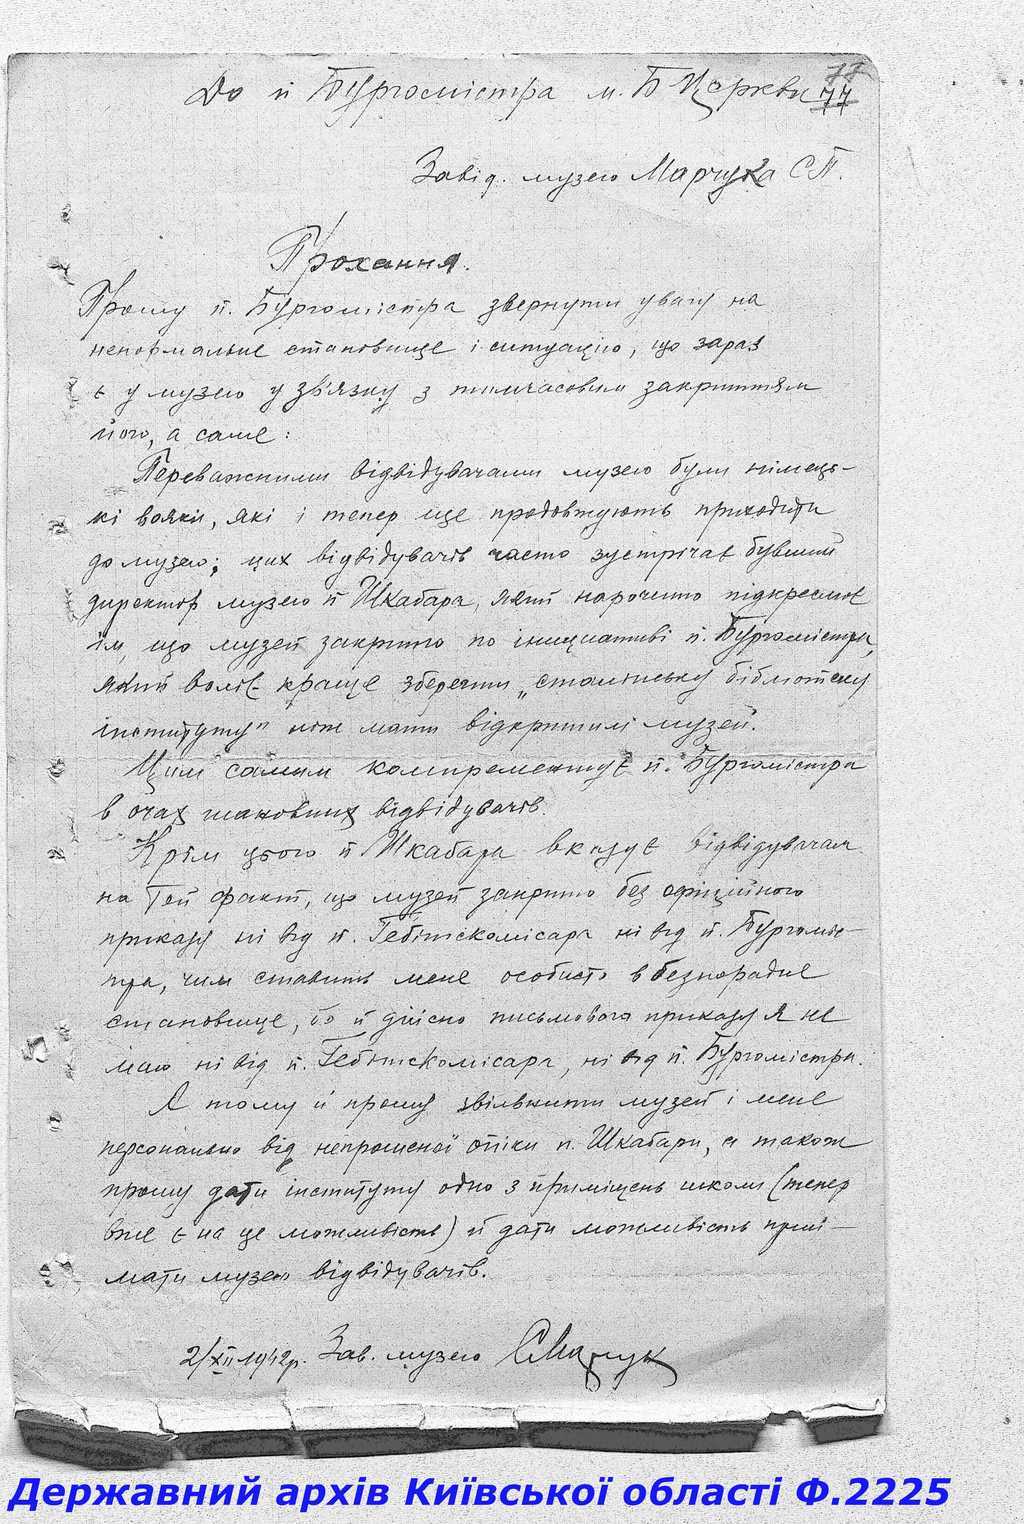 77
До п Бургомістра м. Б Церкви 77
Завід. музею Марчука С П.
Прохання.
Прошу п. Бургомістра звернути увагу на
ненормальне становище і ситуацію, що зараз
є у музею у зв'язку з тимчасовим закриттям
його, а саме:
Переважними відвідувачами музею були німець-
кі вояки, які і тепер ще продовжують приходити
до музею; цих відвідувачів часто зустрічає бувший
директор музею п Шкабара, який нарочито підкреслює
їм, що музей закрито по ініциативі п. Бургомістра,
який воліє краще зберегти „сталінську бібліотеку
інституту" ніж мати відкритим музей.
Цим самим компременнтує п. Бургомістра
в очах шановних відвідувачів.
Крім цього п Шкабара вказує відвідувачам
на той факт, що музей закрито без офіційного
приказу ні від п. Гебітскомісара ні від п. Бургоміс-
тра, чим ставить мене особисто в безпорадне
становище, бо й дійсно письмового приказу я не
маю ні від п. Гебітскомісара, ні від п. Бургомістра.
А тому й прошу звільнити музей і мене
персонально від непрошеної опіки п. Шкабари, а також
прошу дати інституту одно з приміщень школи (тепер
вже є на це можливість) й дати можливість прий-
мати музею відвідувачів.
2/XII 1942р. Зав. музею СМарчук
Державний архів Київської області Ф.2225